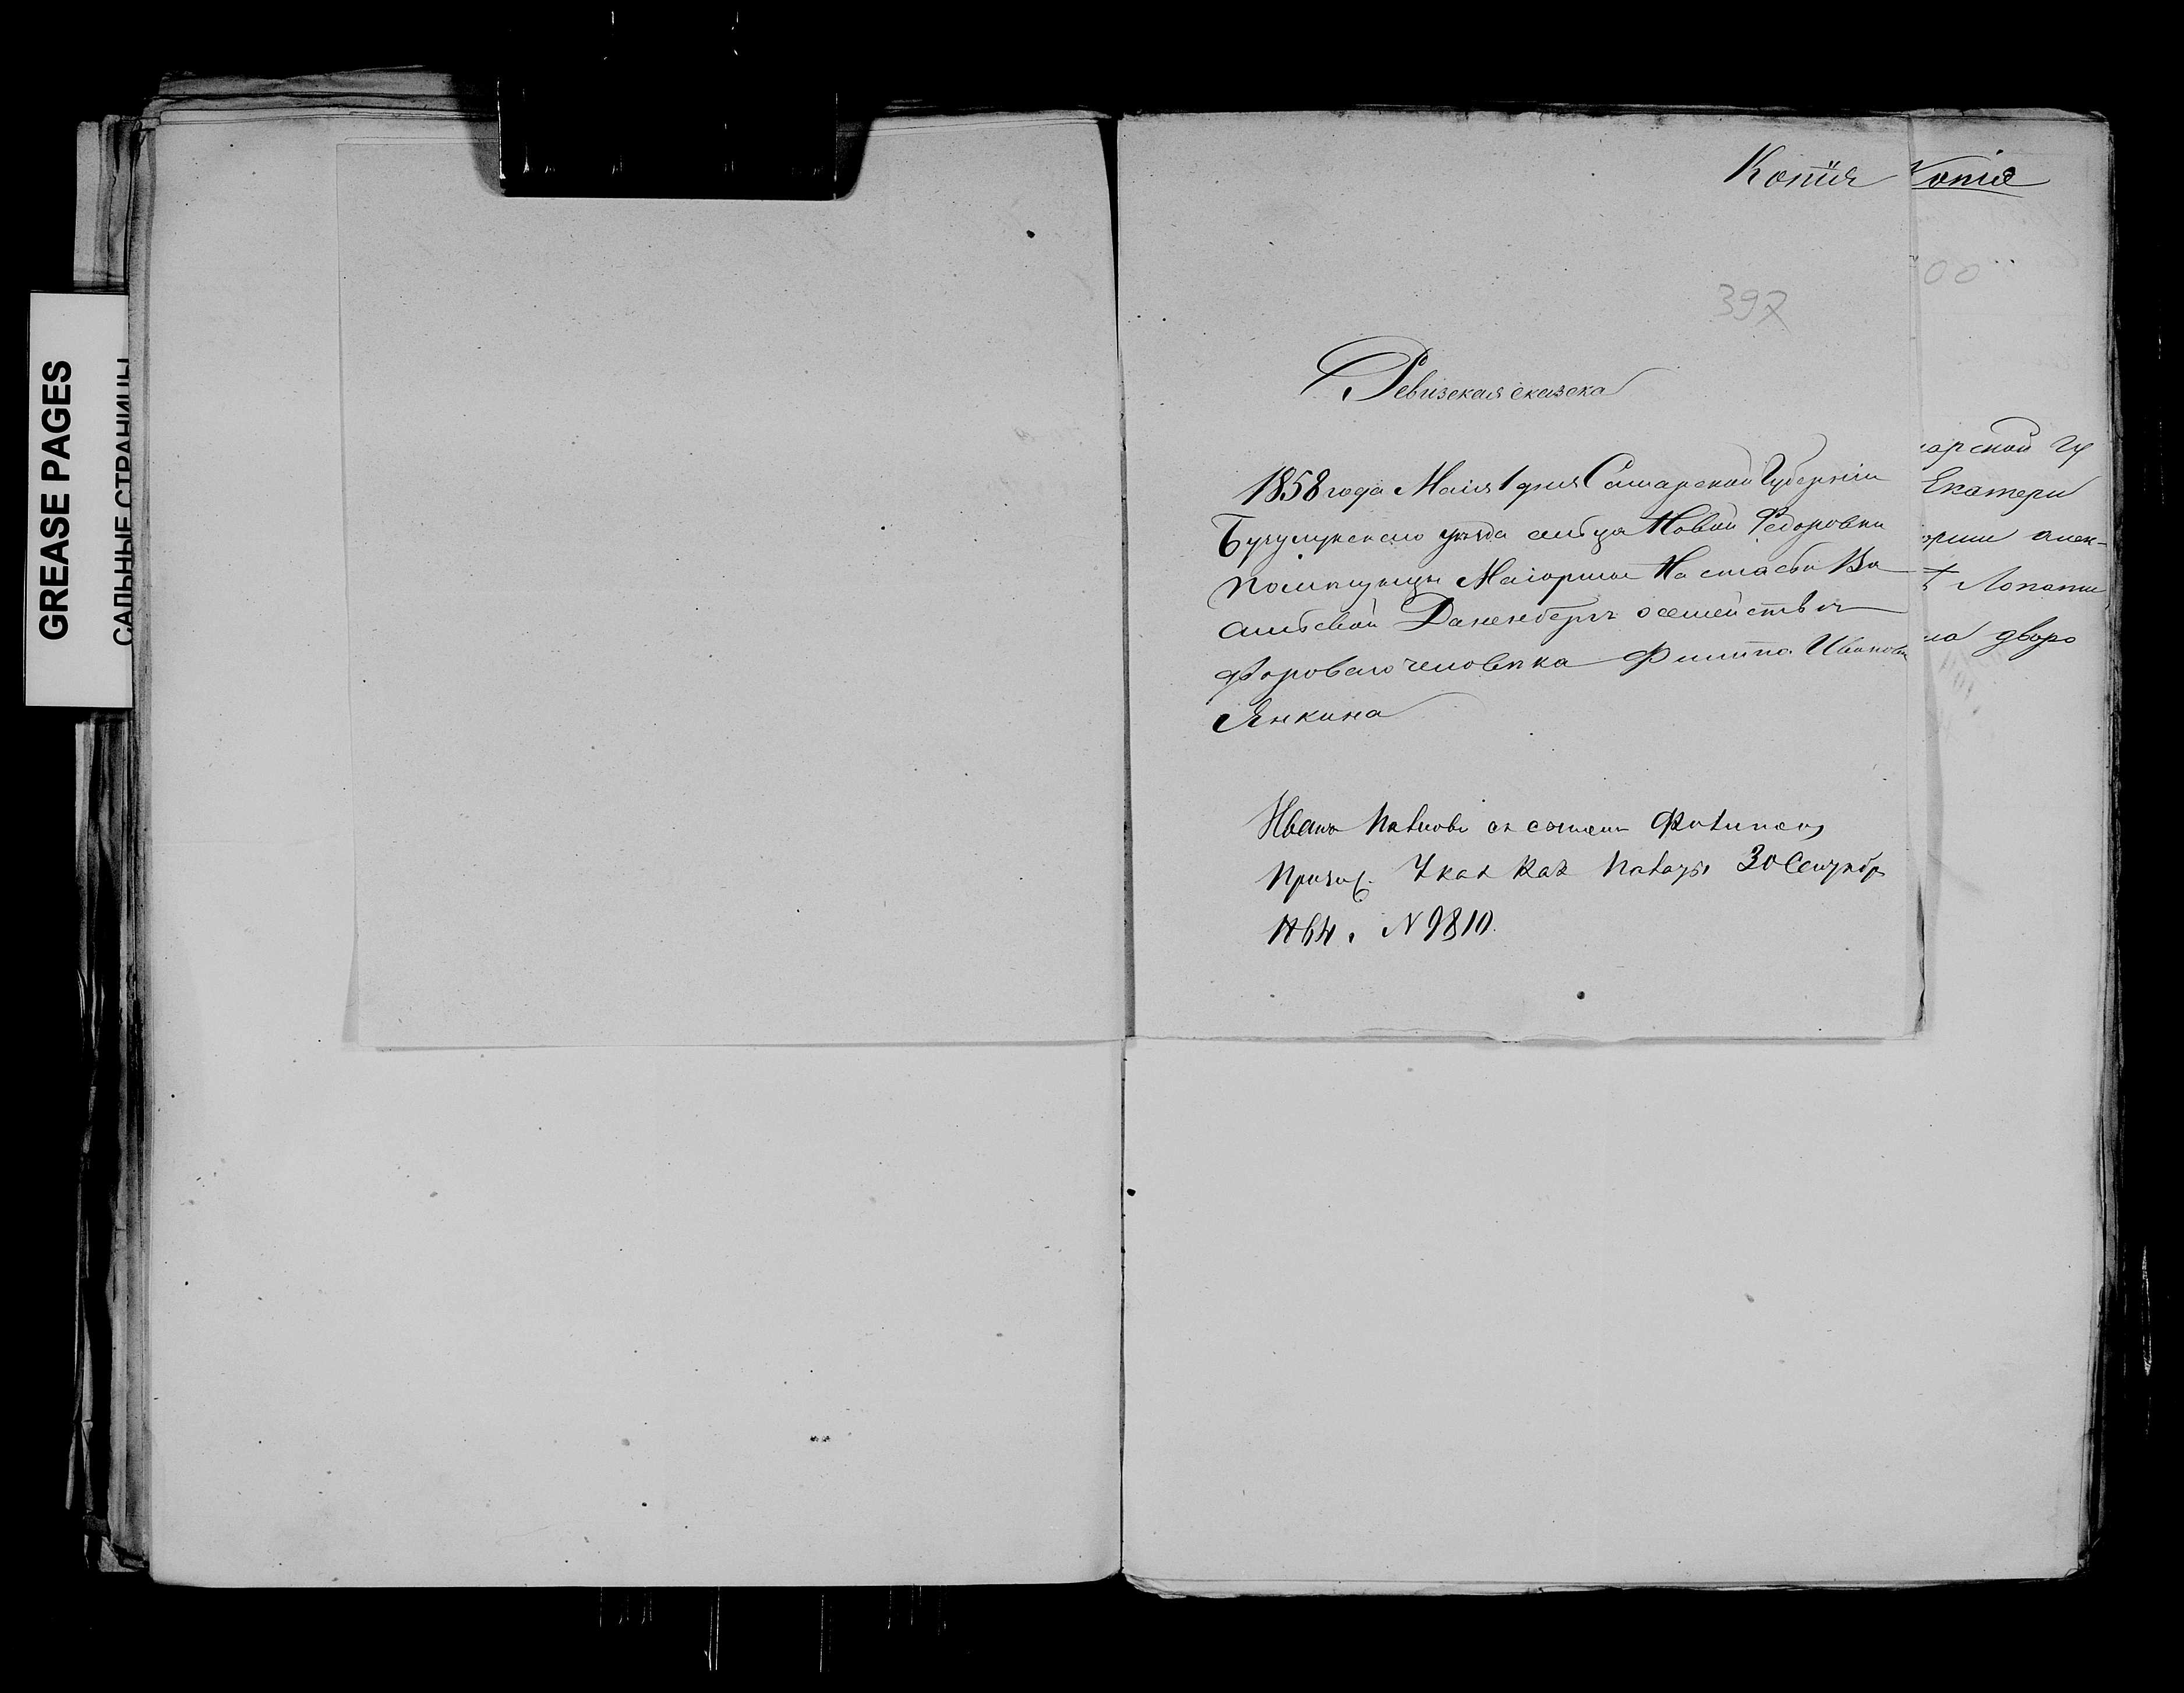 GREASE PAGES
САЛЬНЫЕ СТРАНИЦЫ
Копія
397
Ревизская сказска
1858 года Маія 1 дня Самарской Губерніи
Бугульмскаго уѣзда сельца Новой Федоровки
помѣщицы Маіорши Настасьи Ва
сильевой Даненбергъ о семействѣ
дворового человѣка Филипа Иванова
Янкина
Иванъ съ сыномъ Филипомъ
Указ Каз Палаты 30 Сентябр
1864. N 9810.
Копія
00
арской Гу
Екатери
орши алек-
Лопати
на дворо